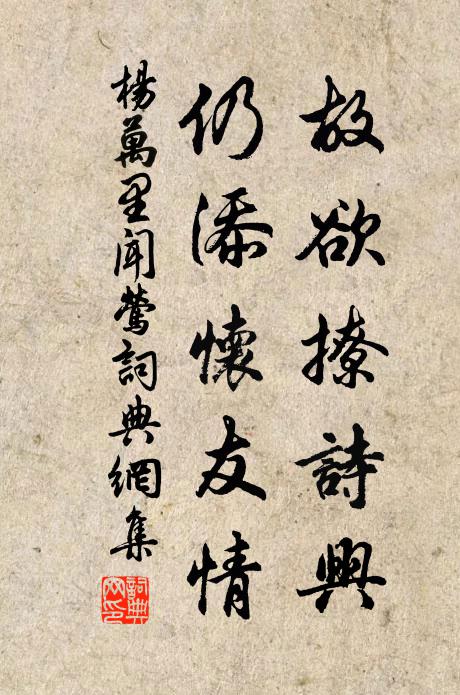 故欲撩詩興
仍添懷友情
楊萬里聞鶯詞典網集
詞典
网印